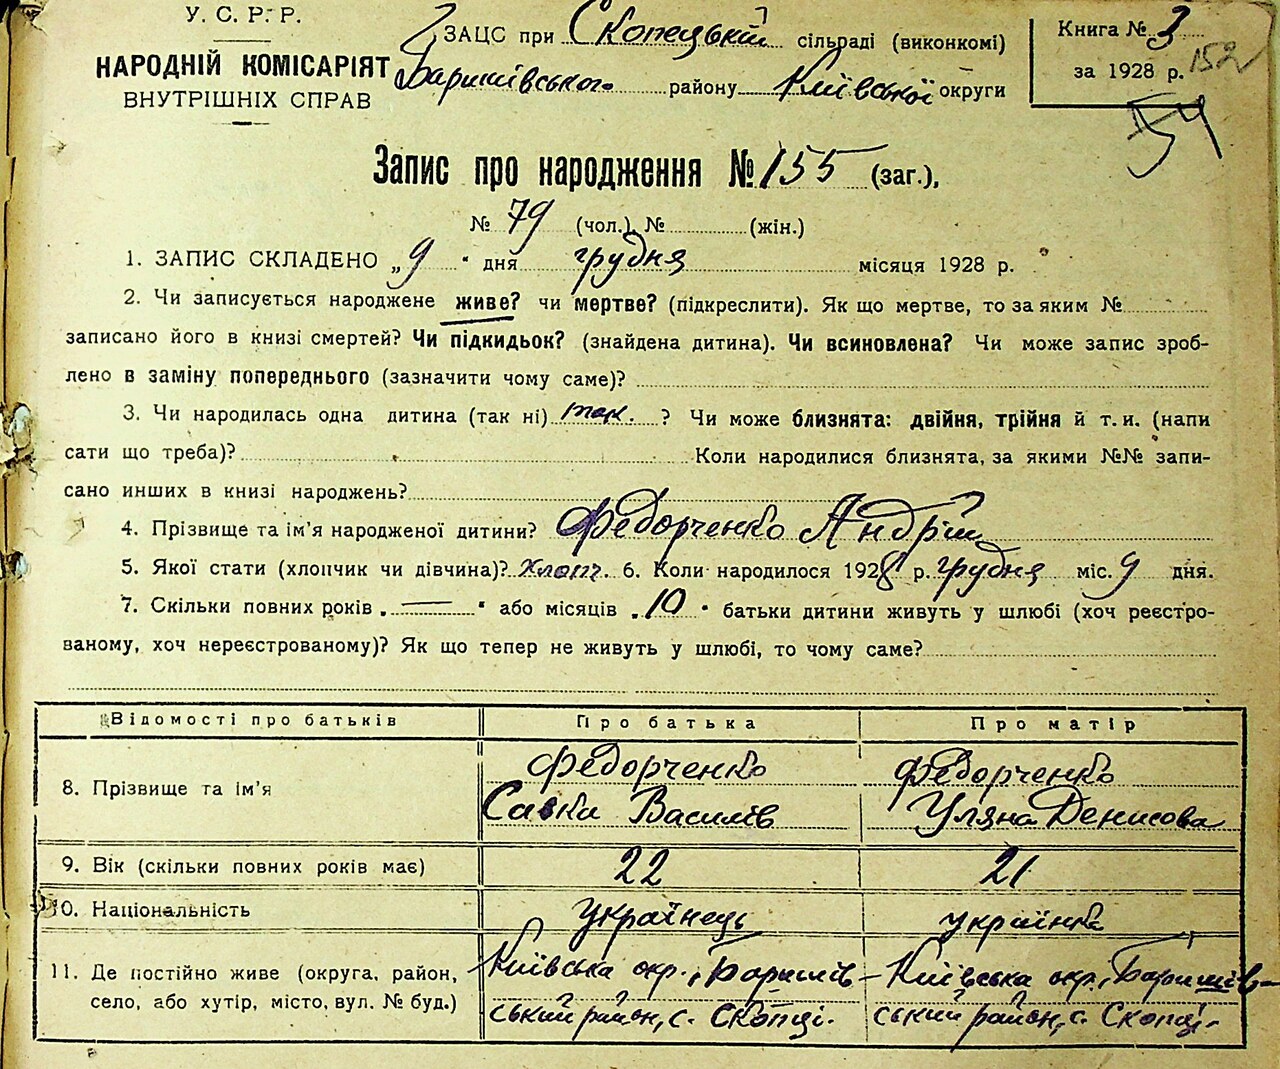 У. С. Р. Р.
НАРОДНІЙ КОМІСАРІЯТ
ВНУТРІШНІХ СПРАВ
ЗАЦС при Скопецькій сільраді (виконкомі)
Баришівського району Київської округи
Книга № 3
за 1928 р.
152
54
Запис про народження № 155 (заг.),
№ 79 (чол.), № (жін.)
1. ЗАПИС СКЛАДЕНО „9" дня грудня місяця 1928 р.
2. Чи записується народжене живе? чи мертве? (підкреслити). Як що мертве, то за яким №
записано його в книзі смертей? Чи підкидьок? (знайдена дитина). Чи всиновлена? Чи може запис зроб-
лено в заміну попереднього (зазначити чому саме)?
3. Чи народилась одна дитина (так ні) так. ? Чи може близнята: двійня, трійня й т. и. (напи
сати що треба)? Коли народилися близнята, за якими №№ запи-
сано инших в книзі народжень?
4. Прізвище та ім'я народженої дитини? Федорченко Андрій
5. Якої стати (хлопчик чи дівчина)? Хлопч. 6. Коли народилося 1928 р. грудня міс. 9 дня.
7. Скільки повних років „—" або місяців „10" батьки дитини живуть у шлюбі (хоч реєстро-
ваному, хоч нереєстрованому)? Як що тепер не живуть у шлюбі, то чому саме?
Відомості про батьків Про батька Про матір
8. Прізвище та ім'я Федорченко Савка Василів Федорченко Уляна Денисова
9. Вік (скільки повних років має) 22 21
10. Національність Українець українка
11. Де постійно живе (округа, район, Київська окр., Баришів- Київська окр., Баришів-
село, або хутір, місто, вул. № буд.) ський район, с. Скопці. ський район, с. Скопці.